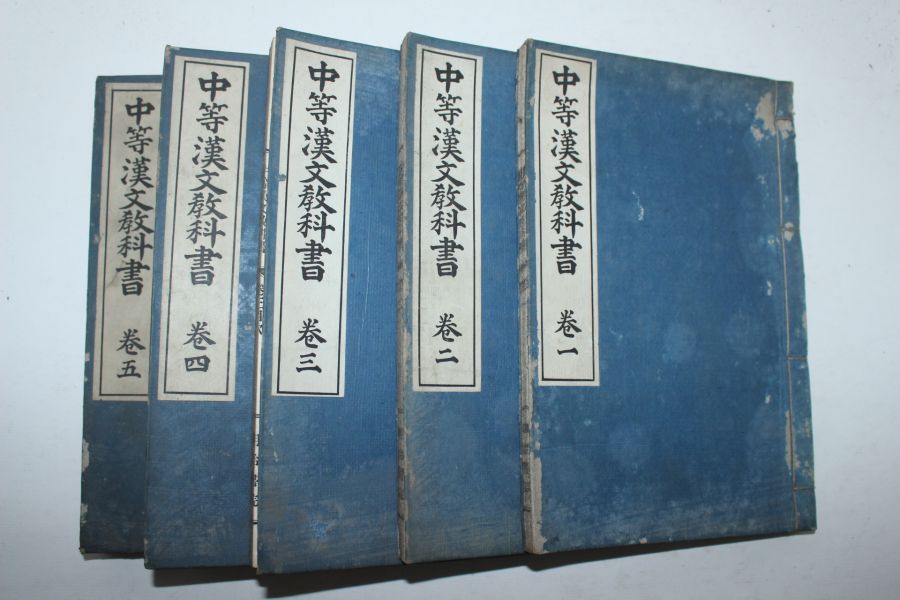 中等漢文教科書 卷一
中等漢文教科書 卷二
中等漢文教科書 卷三
中等漢文教科書 卷四
中等漢文教科書 卷五